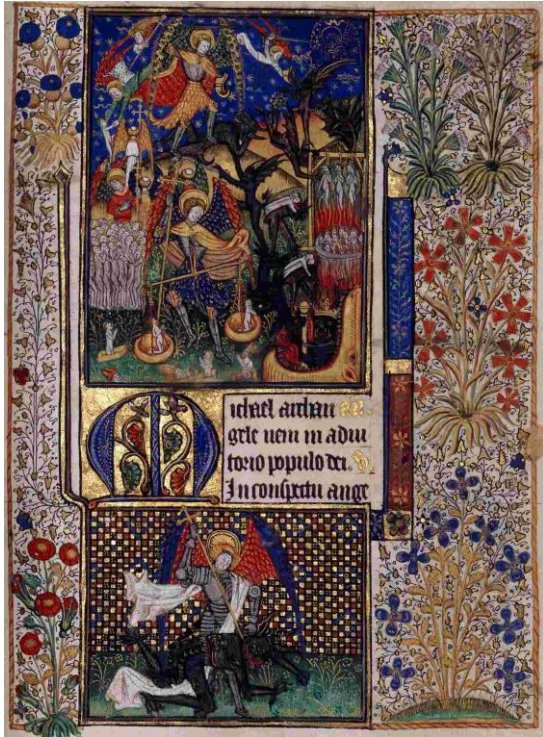 Michael archan
gele veni in adiu
torio populo dei.
In conspectu ange